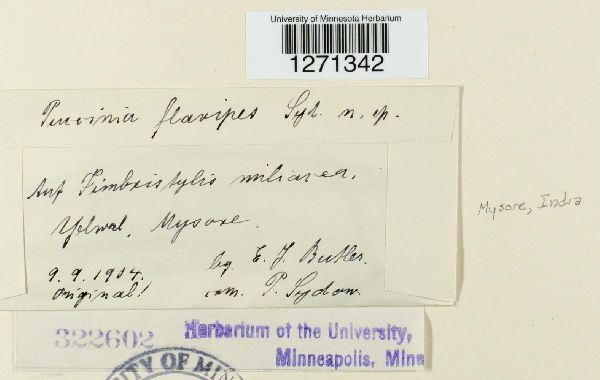 University of Minnesota Herbarium
1271342
Puccinia flavipes Syd. n. sp.
Auf Fimbristylis miliacea,
Yelwal, Mysore.
9. 9. 1904. leg. E. J. Butler.
Original! com. P. Sydow.
Mysore, India
322602 Herbarium of the University,
Minneapolis, Minn
TY OF MINN